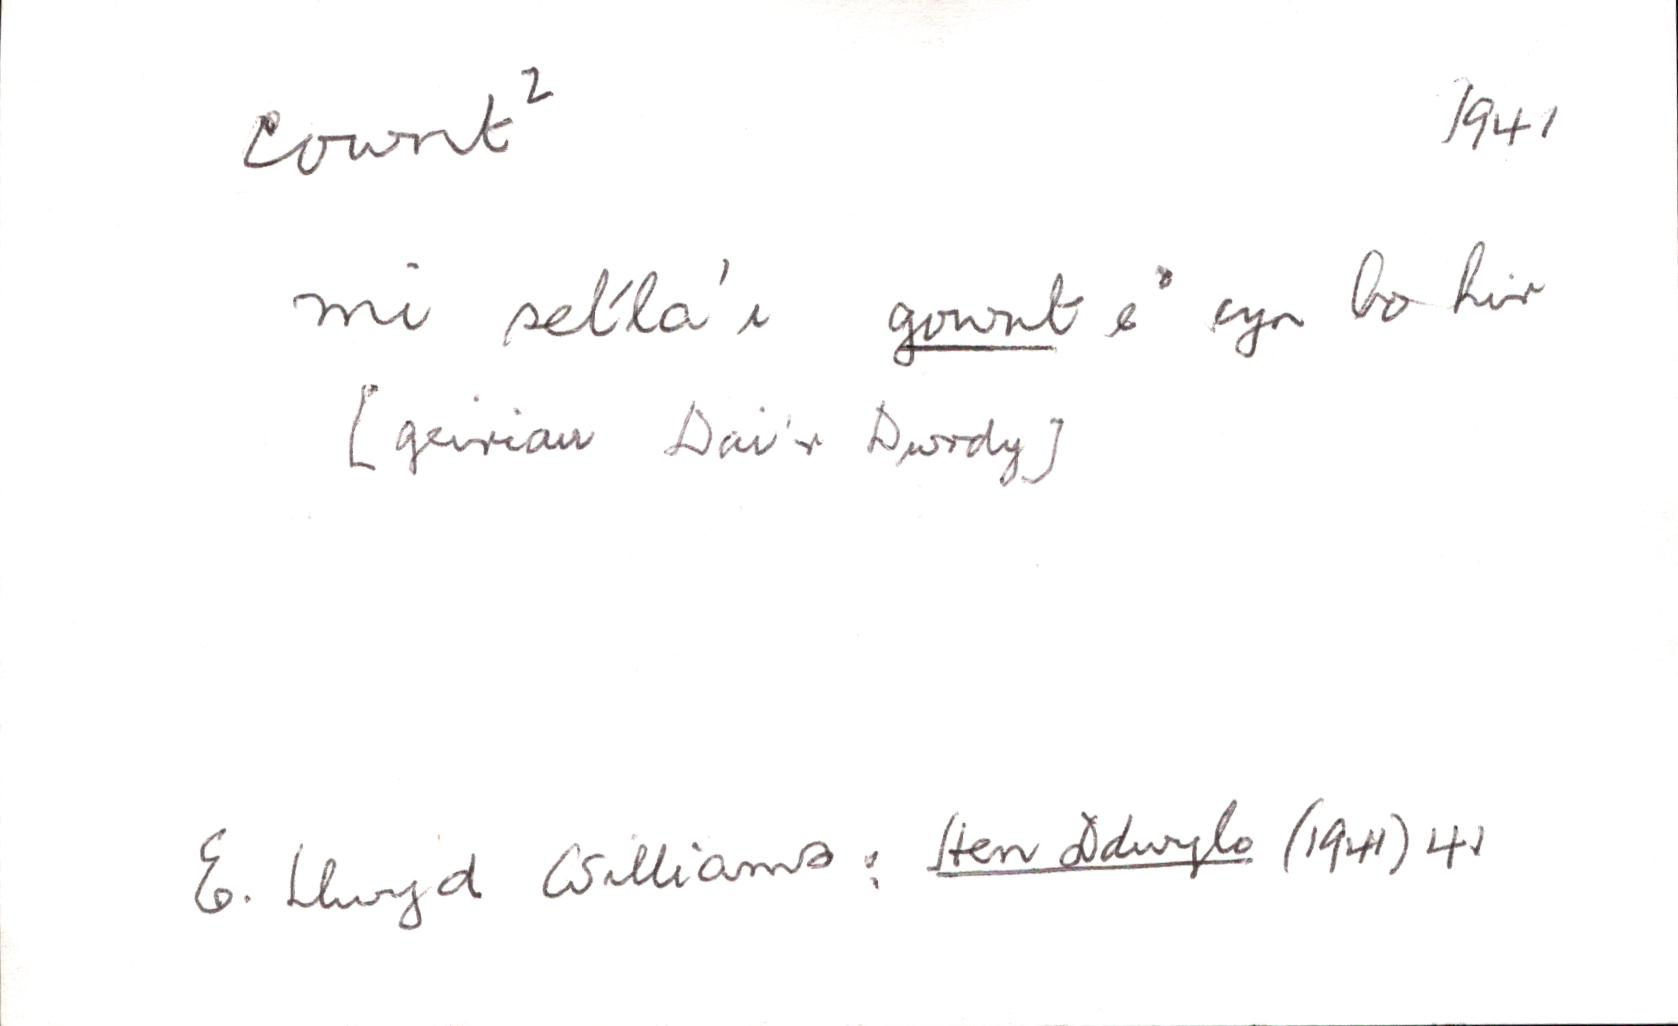 cownt² 1941
mi setla'i gownt e' cyn bo hir
[geiriau Dai'r Dwrdy]
E. Llwyd Williams: Hen Ddwylo (1941) 41